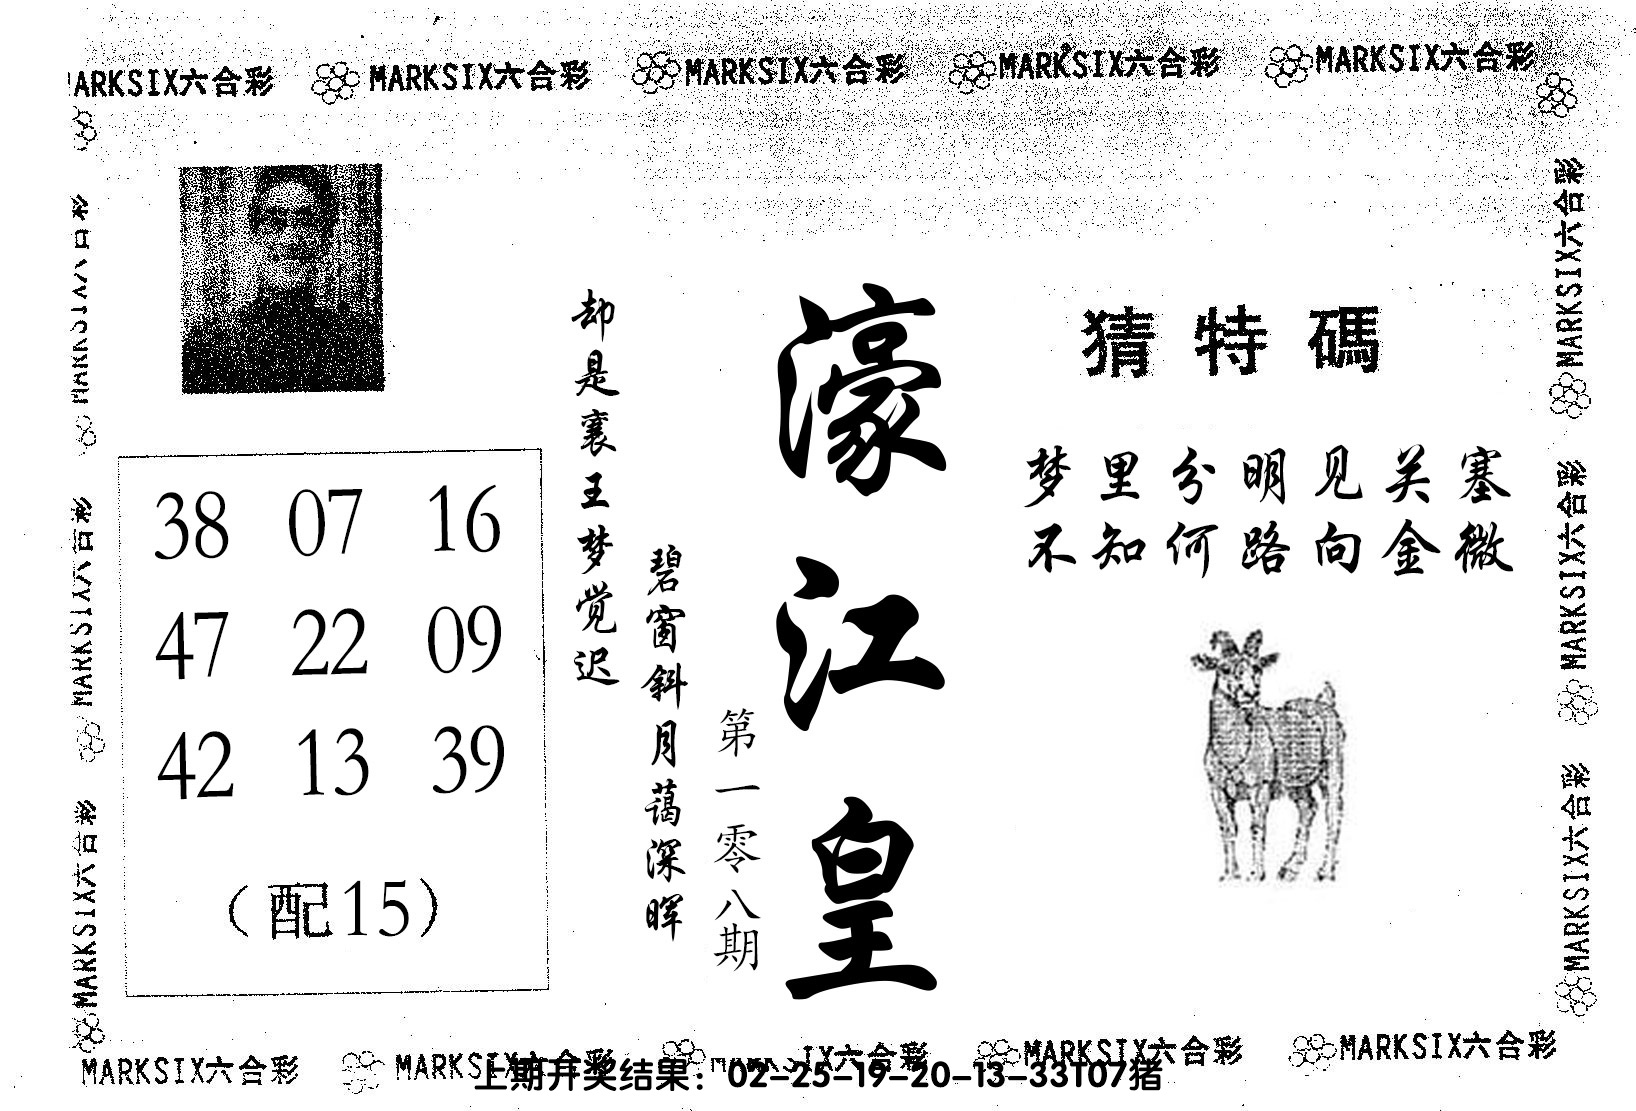 MARKSIX六合彩 MARKSIX六合彩 MARKSIX六合彩 MARKSIX六合彩 MARKSIX六合彩
猜特碼
梦里分明见关塞
不知何路向金微
濠江皇
第一零八期
碧窗斜月蔼深晖
却是襄王梦觉迟
38 07 16
47 22 09
42 13 39
(配15)
MARKSIX六合彩 MARKSIX六合彩 MARKSIX六合彩
MARKSIX六合彩 MARKSIX六合彩 MARKSIX六合彩
MARKSIX六合彩 MARKSIX六合彩 SIX六合彩 MARKSIX六合彩 MARKSIX六合彩
上期开奖结果：02-25-19-20-13-33T07猪